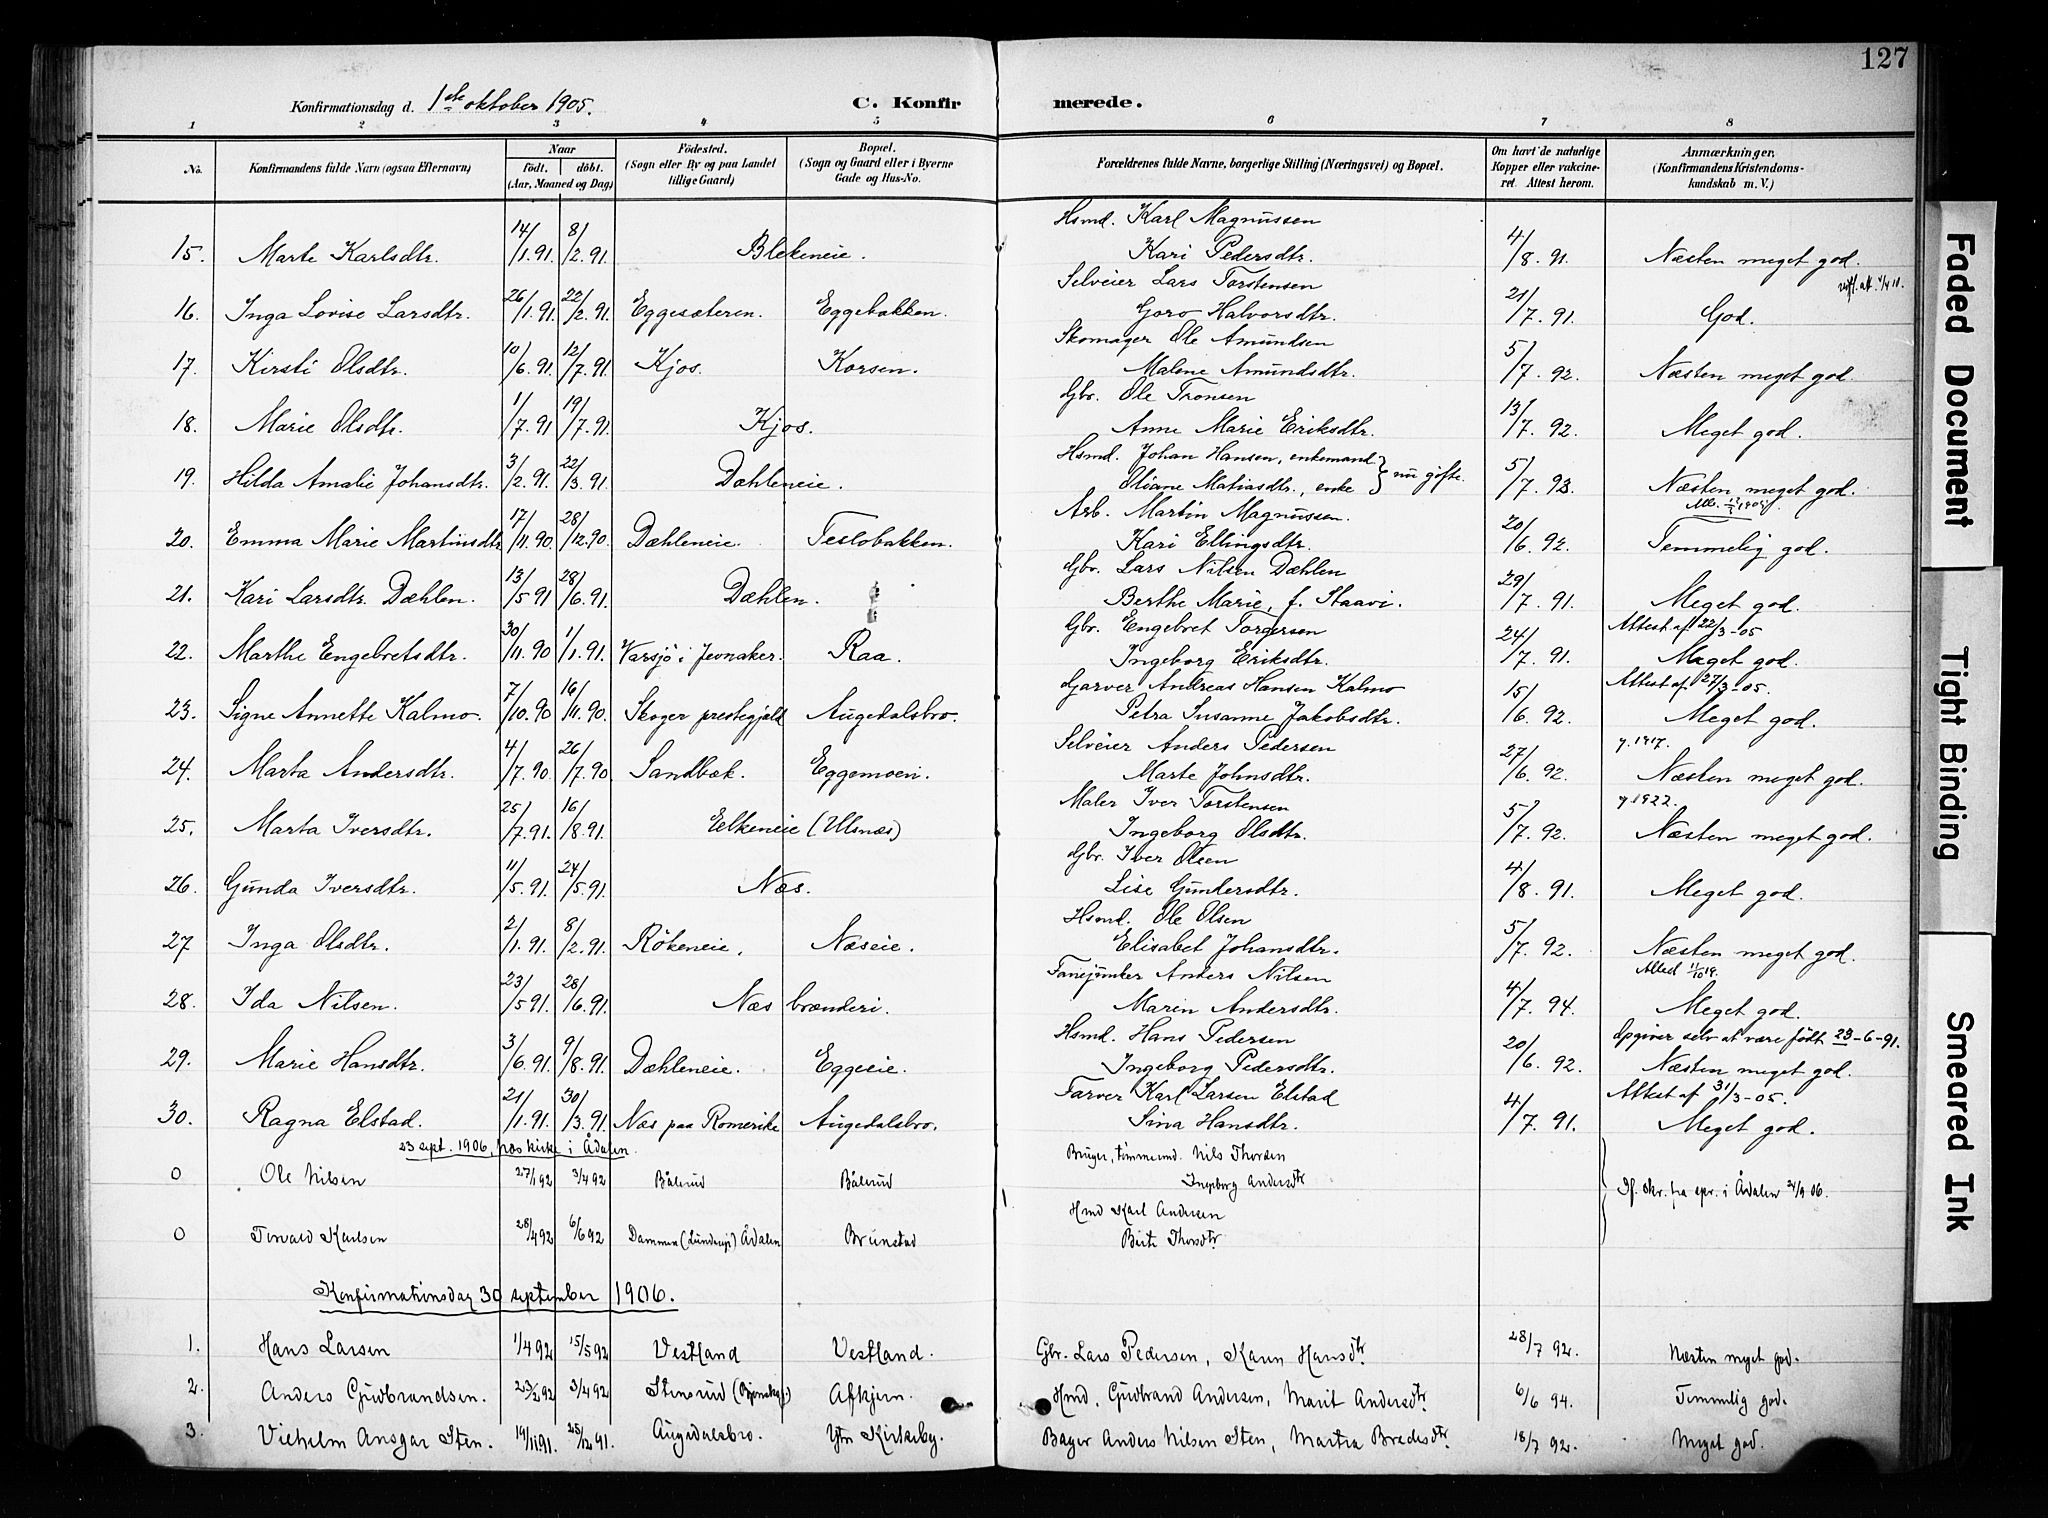 127
Konfirmationsdag d. 1ste oktober 1905.
C. Konfirmerede.
1 2 3 4 5 6 7 8
No. Konfirmandens fulde Navn (ogsaa Efternavn) Naar født. døbt. (Aar, Maaned og Dag) Fødested. (Sogn eller By og paa Landet tillige Gaard) Bopæl. (Sogn og Gaard eller i Byerne Gade og Hus-No. Forældrenes fulde Navne, borgerlige Stilling (Næringsvei) og Bopæl. Om havt de naturlige Kopper eller vakcineret. Attest herom. Anmærkninger. (Konfirmandens Kristendomskundskab m. V.)
Hsmd. Karl Magnussen
15. Marte Karlsdtr. 14/1.91. 8/2.91. Blekeneie. Kari Pedersdtr. 4/8.91. Næsten meget god.
Selveier Lars Torstensen
16. Inga Lovise Larsdtr. 26/1.91. 22/2.91. Eggesæteren. Eggebakken. Goro Halvorsdtr. 21/7.91. God.
Skomager Ole Amundsen
17. Kirsti Olsdtr. 10/6.91. 12/7.91. Kjos. Korsen. Malene Amundsdtr. 5/7.92. Næsten meget god.
Gbr. Ole Tronsen
18. Marie Olsdtr. 1/7.91 19/7.91. Kjos. Anne Marie Eriksdtr. 13/7.92. Meget god.
Hsmd. Johan Hansen, enkemand
19. Hilda Amalie Johansdtr. 3/2.91. 22/3.91. Dæhleneie. Oliane Matiasdtr., enke } nu gifte. 5/7.93. Næsten meget god.
Arb. Martin Magnussen.
20. Emma Marie Martinsdtr 17/11.90 28/12.90. Dæhleneie. Teslobakken. Kari Ellingsdtr. 20/6.92. Temmelig god.
Gbr. Lars Nilsen Dæhlen
21. Kari Larsdtr. Dæhlen. 13/5 91 28/6.91. Dæhlen. Berthe Marie, f. Staavi. 29/7.91. Meget god.
Gbr. Engebret Torgersen Attest af 22/3-05
22. Marthe Engebretsdtr. 30/11.90 1/1.91. Varsjø i Jevnaker. Raa. Ingeborg Eriksdtr. 24/7.91. Meget god.
Garver Andreas Hansen Kalmo Attest af 27/3-05.
23. Signe Annette Kalmo. 7/10.90 16/11.90. Skoger prestegjæld Augedalsbro. Petra Susanne Jakobsdtr. 15/6.92. Meget god.
Selveier Anders Pedersen g. 1917.
24. Marta Andersdtr. 4/7.90. 26/7.90 Sandbæk. Eggemoen. Marte Johnsdtr. 27/6.92. Næsten meget god.
Maler Iver Torstensen g 1922.
25. Marta Iversdtr. 25/7.91. 16/8.91. Eelkeneie (Ulsnæs) Ingeborg Olsdtr. 5/7.92. Næsten meget god.
Gbr. Iver Olsen
26. Gunda Iversdtr. 11/5.91. 24/5.91. Næs. Lise Gundersdtr. 4/8.91. Meget god.
Hsmd. Ole Olsen
27 Inga Olsdtr. 2/1.91. 8/2.91. Rökeneie. Næseie. Elisabet Johansdtr. 5/7.92. Næsten meget god.
Fanejunker Anders Nilsen Attest 11/10 19.
28. Ida Nilsen. 23/5 91. 28/6.91. Næs brænderi. Maren Andersdtr. 4/7.94. Meget god.
Hsmd. Hans Pedersen Opgiver selv at være født 23-6-91.
29. Marie Hansdtr. 3/6.91. 9/8.91. Dæhleneie. Eggeeie. Ingeborg Pedersdtr. 20/6.92. Næsten meget god.
Farver Karl Larsen Elstad Attest af 31/3-05.
30. Ragna Elstad. 21/1.91. 30/3.91. Næs paa Romerike Augedalsbro. Sina Hansdtr. 4/7.91. Meget god.
23 sept. 1906, næs kirke i Ådalen.
Bruger, tømmermd. Nils Thorsen
0 Ole Nilsen 27/1 92 3/4 92 Bålerud Bålerud Ingeborg Andersdtr If. skr. fra spr. i Ådalen 24/9 06.
Hmd Karl Andersen
0 Torvald Karlsen 28/4 92 6/6 92 Dammen (Lunderspl) Ådalen Brunstad Berte Thorsdtr
Konfirmationsdag 30 september 1906.
1. Hans Larsen 1/4 92 15/5 92 Vestland Vestland. Gbr. Lars Pedersen, Karen Hansdtr 28/7 92. Næsten meget god.
2. Anders Gudbrandsen. 23/2 92 3/4 92 Stensrud Afkjern. Hmd. Gudbrand Andersen, Marit Andersdtr 6/6 94. Temmelig god.
3. Vilhelm Ansgar Sten. 19/11 91. 25/12 91. Augedalsbro. Ytr. Kirkeby. Bager Anders Nilsen Sten, Martea Bredesdtr 18/7 92. Meget god.
Faded Document
Tight Binding
Smeared Ink